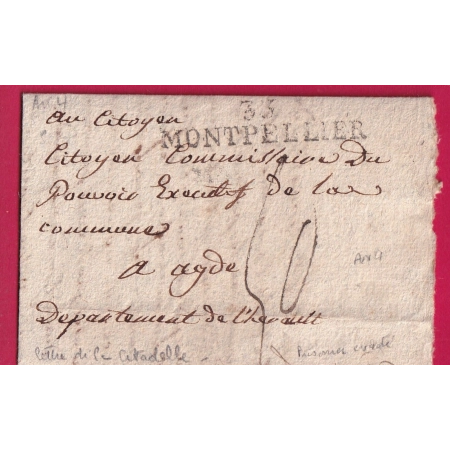 An 4
33
au Citoyen
MONTPELLIER
Citoyen Commissaire Du
Pouvoir Executif de la
commune
a agde
50
An 4
Departement de l'herault
lettre de la citadelle
Prisonnier évadé